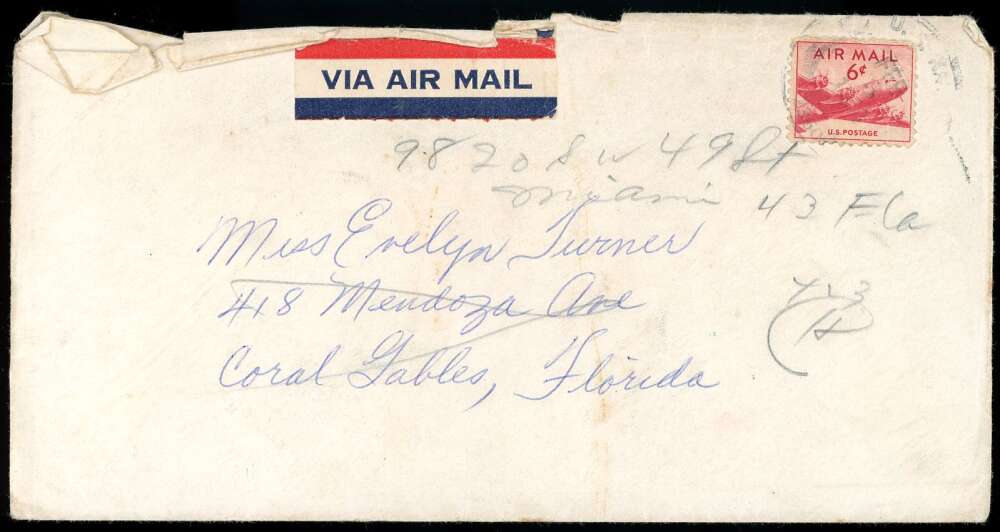 VIA AIR MAIL
AIR MAIL
6¢
U.S. POSTAGE
9820 S W 49 St
Miami 43 Fla
Miss Evelyn Turner
418 Mendoza Ave
Coral Gables, Florida